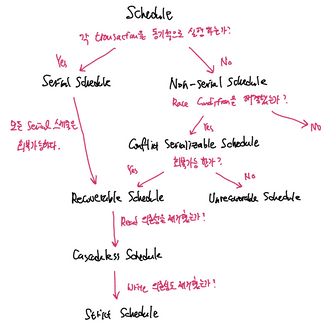 Schedule
각 transaction을 동기적으로 실행하는가?
Yes
No
Serial Schedule
Non-serial Schedule
Race Condition을 해결했는가?
모든 Serial 스케줄은
회복가능하다.
Yes
No
Conflict Serializable Schedule
회복가능 한가?
Yes
No
Recoverable Schedule
Unrecoverable Schedule
Read 의존성을 제거했는가?
Cascadeless Schedule
Write 의존성도 제거했는가?
Strict Schedule